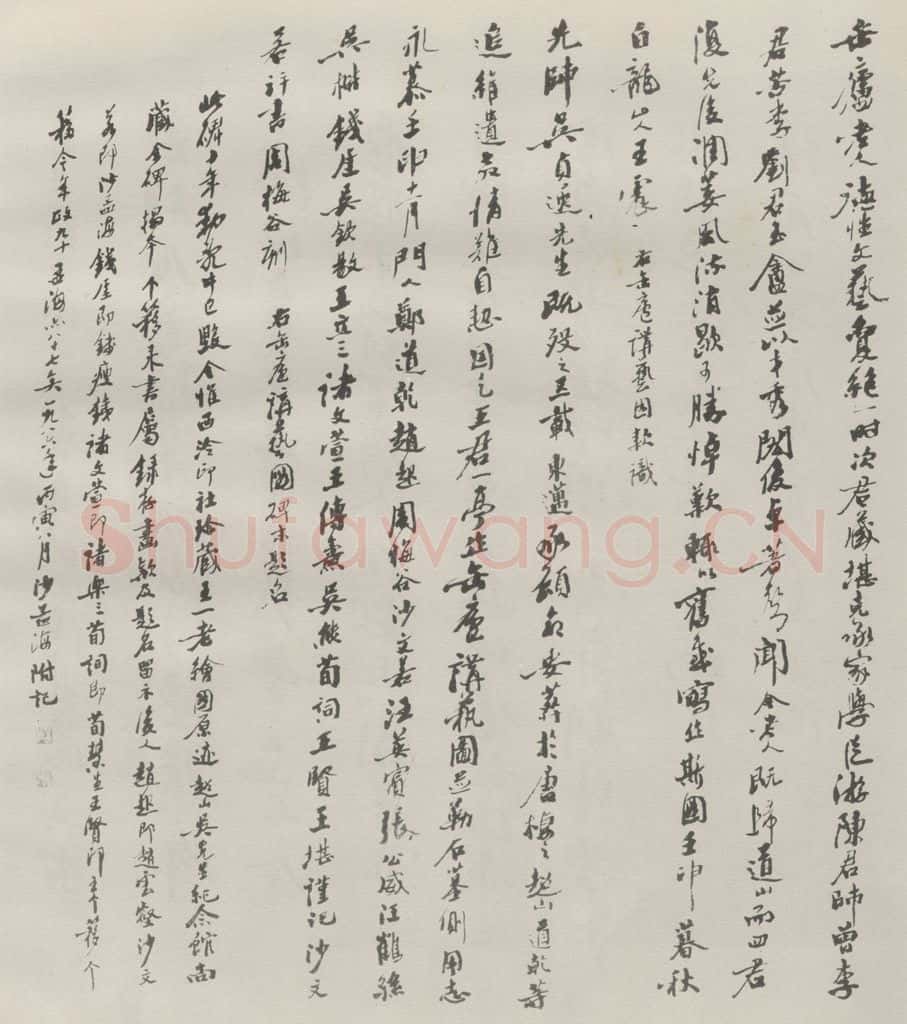 缶廬老人德性文藝夐絕一時次君藏堪克承家學從游陳君師曾李
君苦李劉君玉盦並以才秀閎俊卓著聲聞今老人既歸道山而四君
復先後凋萎風流消歇可勝悼歎輒以舊寫作斯圖壬申暮秋
白龍山人王震 右缶廬講藝圖款識
先師吳貞逸先生既歿之五載東邁承顧命安葬於唐棲之超山道乾等
追維遺教情難自恝因乞王君一亭作缶廬講藝圖並勒石墓側用志
永慕壬申十二月門人鄭道乾趙起周梅谷沙文若汪英賓張公威江鶴孫
吳楷錢厓吳欽敭王諸文萱王傳燾吳熊荀詞王賢王堪謹記沙文
若并書周梅谷刻 右缶廬講藝圖碑末題名
此碑十年動亂中已毀今惟西泠印社珍藏王一老繪圖原迹超山吳先生紀念館尚
藏全碑搨本个簃來書屬錄存畫款及題名留示後人趙起即趙雲壑沙文
若即沙孟海錢厓即錢瘦鐵諸文萱即諸樂三荀詞即荀慧生王賢即王个簃个
簃今年政九十孟海亦八十七矣一九八六年丙寅八月沙孟海附記
Shufawang.CN